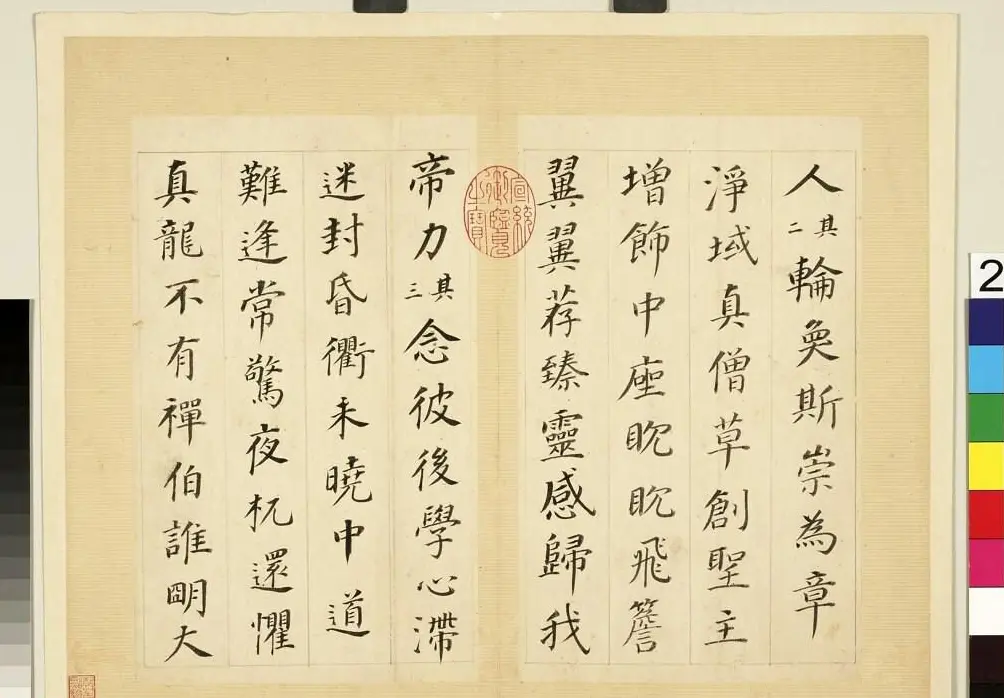 人其二輪奐斯崇為章
淨域真僧草創聖主
增飾中座眈眈飛簷
翼翼荐臻靈感歸我
宣統御覽之寶
帝力其三念彼後學心滯
迷封昏衢未曉中道
難逢常驚夜杌還懼
真龍不有禪伯誰明大
2